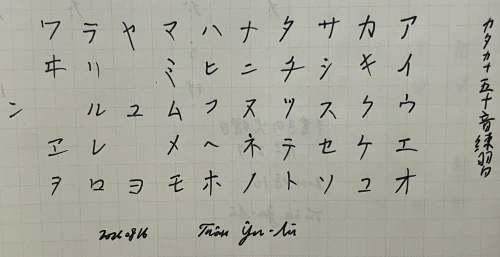 カタカナ五十音練習
アイウエオ
カキクケコ
サシスセソ
タチツテト
ナニヌネノ
ハヒフヘホ
マミムメモ
ヤユヨ
ラリルレロ
ワヰヱヲ
ン